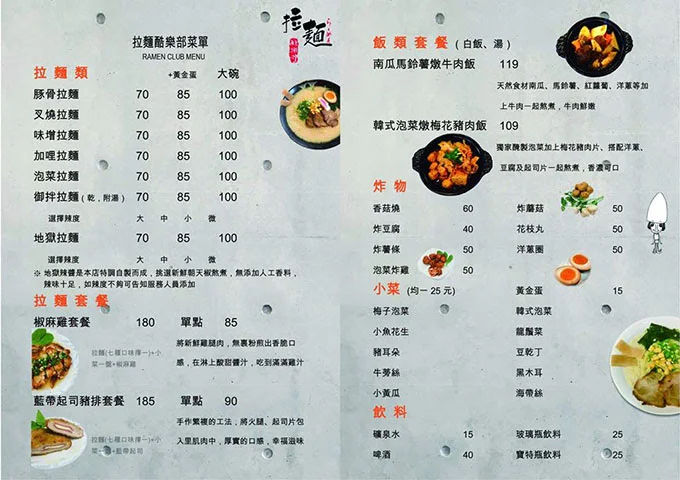 拉麵酷樂部菜單
RAMEN CLUB MENU
拉麵
拉麵類 +黃金蛋 大碗
豚骨拉麵 70 85 100
叉燒拉麵 70 85 100
味增拉麵 70 85 100
加哩拉麵 70 85 100
泡菜拉麵 70 85 100
御拌拉麵(乾,附湯) 70 85 100
選擇辣度 大 中 小 微
地獄拉麵 70 85 100
選擇辣度 大 中 小 微
※ 地獄辣醬是本店特調自製而成,挑選新鮮朝天椒熬煮,無添加人工香料,
辣味十足,如辣度不夠可告知服務人員添加
拉麵套餐
椒麻雞套餐 180 單點 85
將新鮮雞腿肉,無裹粉煎出香脆口
感,在淋上酸甜醬汁,吃到滿滿雞汁
拉麵(七種口味擇一)+小
菜一盤+椒麻雞
藍帶起司豬排套餐 185 單點 90
手作繁複的工法,將火腿、起司片包
入里肌肉中,厚實的口感,幸福滋味
拉麵(七種口味擇一)+小
菜一盤+藍帶起司
飯類套餐 (白飯、湯)
南瓜馬鈴薯燉牛肉飯 119
天然食材南瓜、馬鈴薯、紅蘿蔔、洋蔥等加
上牛肉一起熬煮,牛肉鮮嫩
韓式泡菜燉梅花豬肉飯 109
獨家醃製泡菜加上梅花豬肉片、搭配洋蔥、
豆腐及起司片一起熬煮,香濃可口
炸物
香菇燒 60 炸蘑菇 50
炸豆腐 40 花枝丸 50
炸薯條 50 洋蔥圈 50
泡菜炸雞 50
小菜 (均一 25 元) 黃金蛋 15
梅子泡菜 韓式泡菜
小魚花生 龍鬚菜
豬耳朵 豆乾丁
牛蒡絲 黑木耳
小黃瓜 海帶絲
飲料
礦泉水 15 玻璃瓶飲料 25
啤酒 40 寶特瓶飲料 25